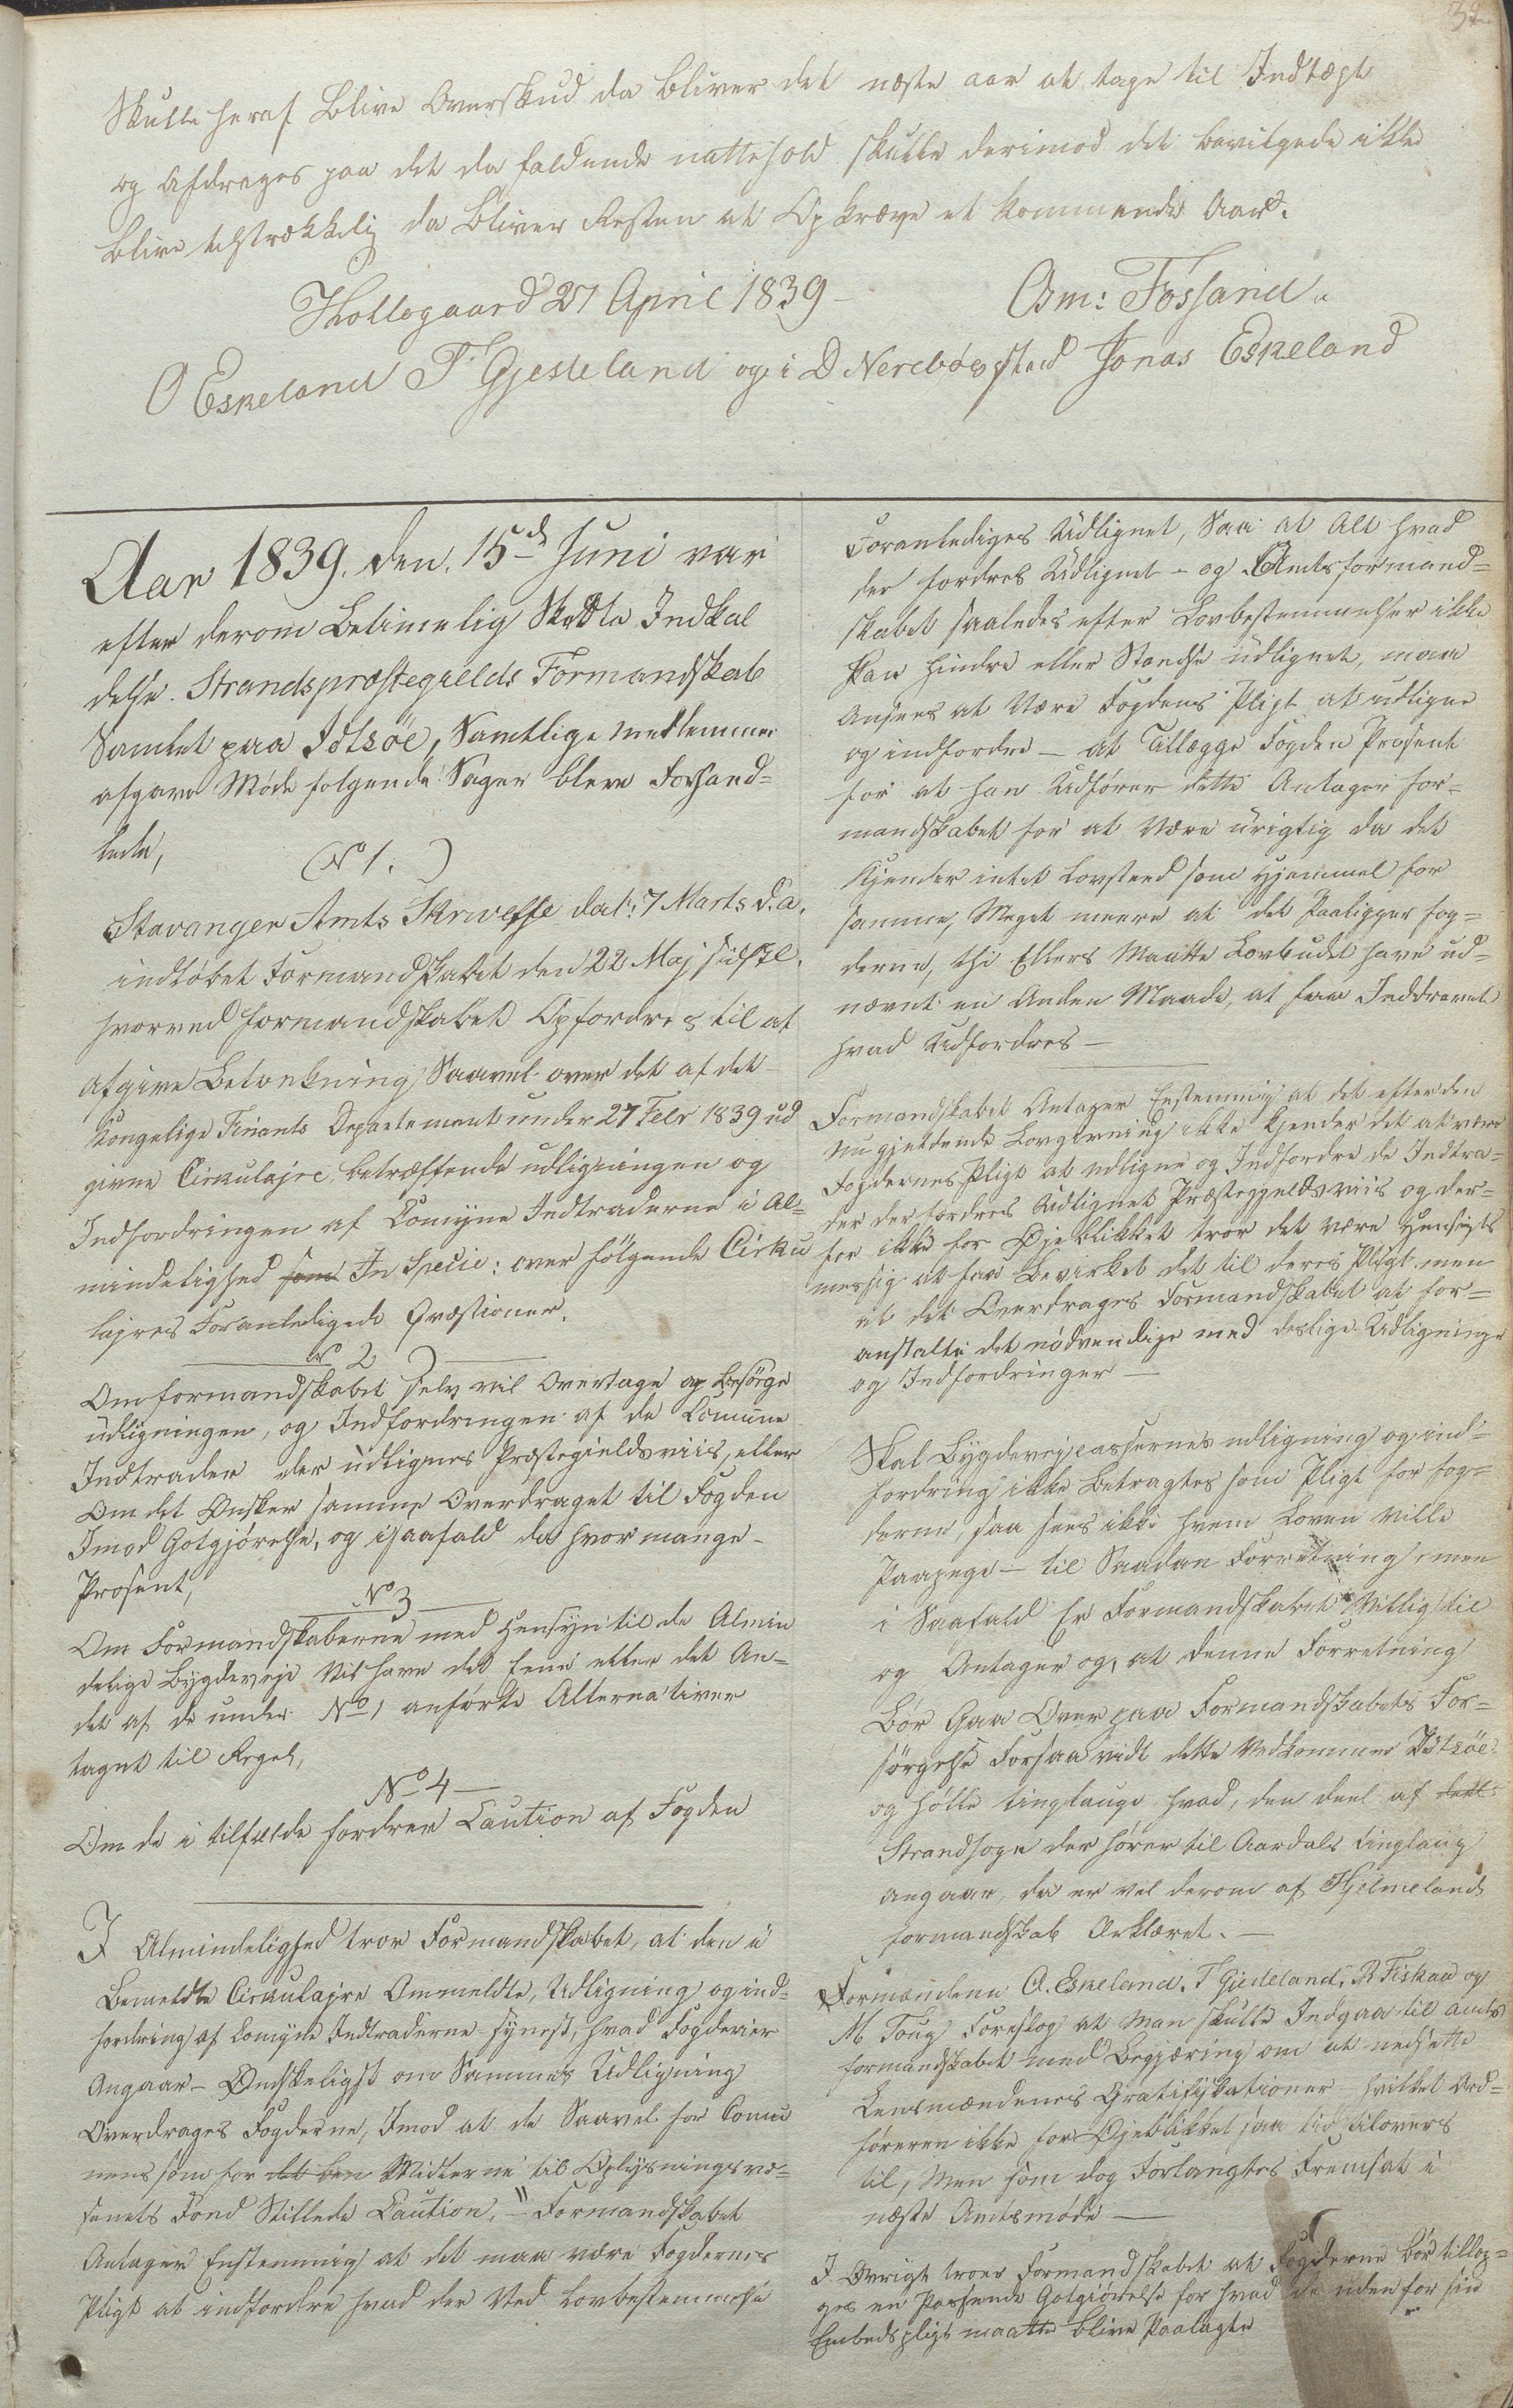 32
Skulle heraf Blive Overskud da bliver det næste aar at tage til Indtægt
og Afdrages paa det da faldende nattehold skulle derimod det bevilgede ikke
blive tilstrækkelig da bliver Resten at Opkræve et kommende Aar.
Kollegaard 27 April 1839 – Osm: Fossand.
O Eskeland T Gjesteland og i D Nerebøes sted Jonas Eskeland
Aar 1839. den. 15d Juni var
efter derom betimelig Skedte Indkal
delse. Strandspræstegields Formandskab
Samlet paa Idtsøe, Samtlige medlemmer
afgave Møde følgende Sager bleve Forhand=
lede,
(No 1.)
Stavanger Amts Skrivelse dat: 7 Marts d. a.
indløbet Formandskabet den 22 Maj sidstl.
hvorved Formandskabet Opfordres til at
afgive Betænkning Saavel over det af det
Kongelige Finants Departement under 27 Febr 1839 ud
givne Cirkulajre betræffende udligningen og
Indfordringen af Comyne Indtraderne i Al=
mindelighed som In Specie: over følgende Cirku
lajres Foranledigede Qvæstioner.
No 2
Om formandskabet selv vil Overtage og besørge
udligningen, og Indfordringen af de Comune
Indtrader der udlignes Præstegieldsviis, eller
Om det Ønsker samme Overdraget til Fogden
Imod Gotgjørelse, og isaafald da hvor mange
Prosent,
No 3
Om Formandskaberne med Hensyn til de Almin
delige Bygdeveje Vil have det Ene eller det An=
det af de under No 1 anførte Alternativer
taget til Regel,
No 4
Om de i tilfælde fordrer Caution af Fogden
I Almindelighed tror Formandskabet, at den i
Bemeldte Cirkulajre Ommeldte, Udligning og ind=
fordring af Comyne Indtraderne synest, hvad Fogderier
Angaar – Ønskeligst om Sammes Udligning
Overdrages Fogderne, Imod at de Saavel for Comu
nens som for det ben Midlerne til Oplysningsvæ=
senets Fond Stillede Caution, – Formandskabet
Antager Enstemmig at det maa være Fogdernes
Pligt at indfordre hvad der Ved Lovbestemmelse
Foranlediges Udlignet, Saa at Alt hvad
der fordres Udlignet – og Amtsformand=
skabet saaledes efter Lovbestemmelser ikke
kan hindre eller Standse udlignet, maa
Ansees at Være Fogdens Pligt at udligne
og indfordre – at Tillægge Fogden Prosent
for at han Udfører dette Antager for=
mandskabet for at Være urigtig da det
Kjender intet Lovsteed som Hjemmel for
samme, Meget meere at det Paaligger fog=
derne, thi Ellers Maatte Lovbudet have ud=
nævnt en Anden Maade, at faa Inddrevet
hvad Udfordres –
Formandskabet Antager Enstemmig at det efter den
nu gjeldende Lovgivning ikke kjender det at være
Fogdernes Pligt at udligne og Indfordre de Indtra=
der der fordres Udlignet Præstegjeldsviis og der=
for ikke for Øjeblikket tror det være Hensigts
messig at faa bevirket det til deres Pligt men
at det Overdrages Formandskabet at for=
anstalte det nødvendige med deslige Udligninger
og Indfordringer –
Skal Bygdevejcassernes udligning og ind=
fordring ikke Betragtes som Pligt for fog=
derne, saa sees ikke hvem Loven ville
Paapege – til Saadan Forretning, men
i Saafald Er Formandskabet Villig til
og Antager og, at denne Forretning
Bør Gaa Over paa Formandskabets For=
sørgelse Forsaavidt dette Vedkommer Idtsøe
og Hølle tinglauge hvad, den deel af dett
Strandsogn der hører til Aardals tinglaug
angaar, da er vel derom af Hjelmelands
formandskab Erklæret. –
Formændene O. Eskeland. T Gjedeland, R Fiskaa og
M Toug Foreslog at Man skulle Indgaa til amts
formandskabet med Begjæring om at nedsætte
Lensmændenes Gratifikationer – hvilket Ord=
føreren ikke for Øjeblikket saa tid tilovers
til, Men som dog Forlangtes Fremsat i
næste Amtsmøde –
I Øvrigt troer Formandskabet at Fogderne bør tillæg=
ges en Passende Gotgiørelse for hvad de uden for sin
Embedspligt maatte blive Paalagte